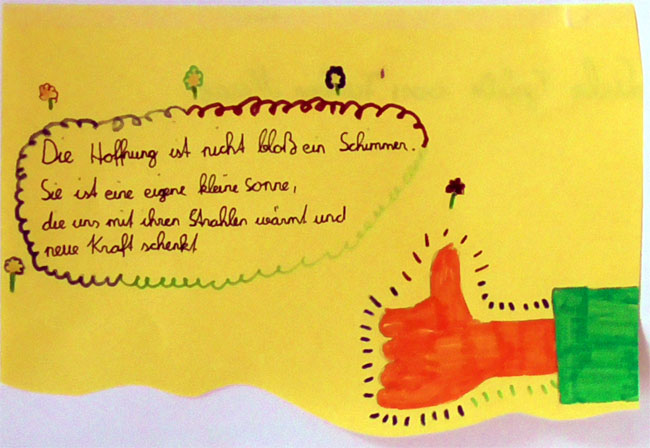 Die Hoffnung ist nicht bloß ein Schimmer.
Sie ist eine eigene kleine Sonne,
die uns mit ihren Strahlen wärmt und
neue Kraft schenkt